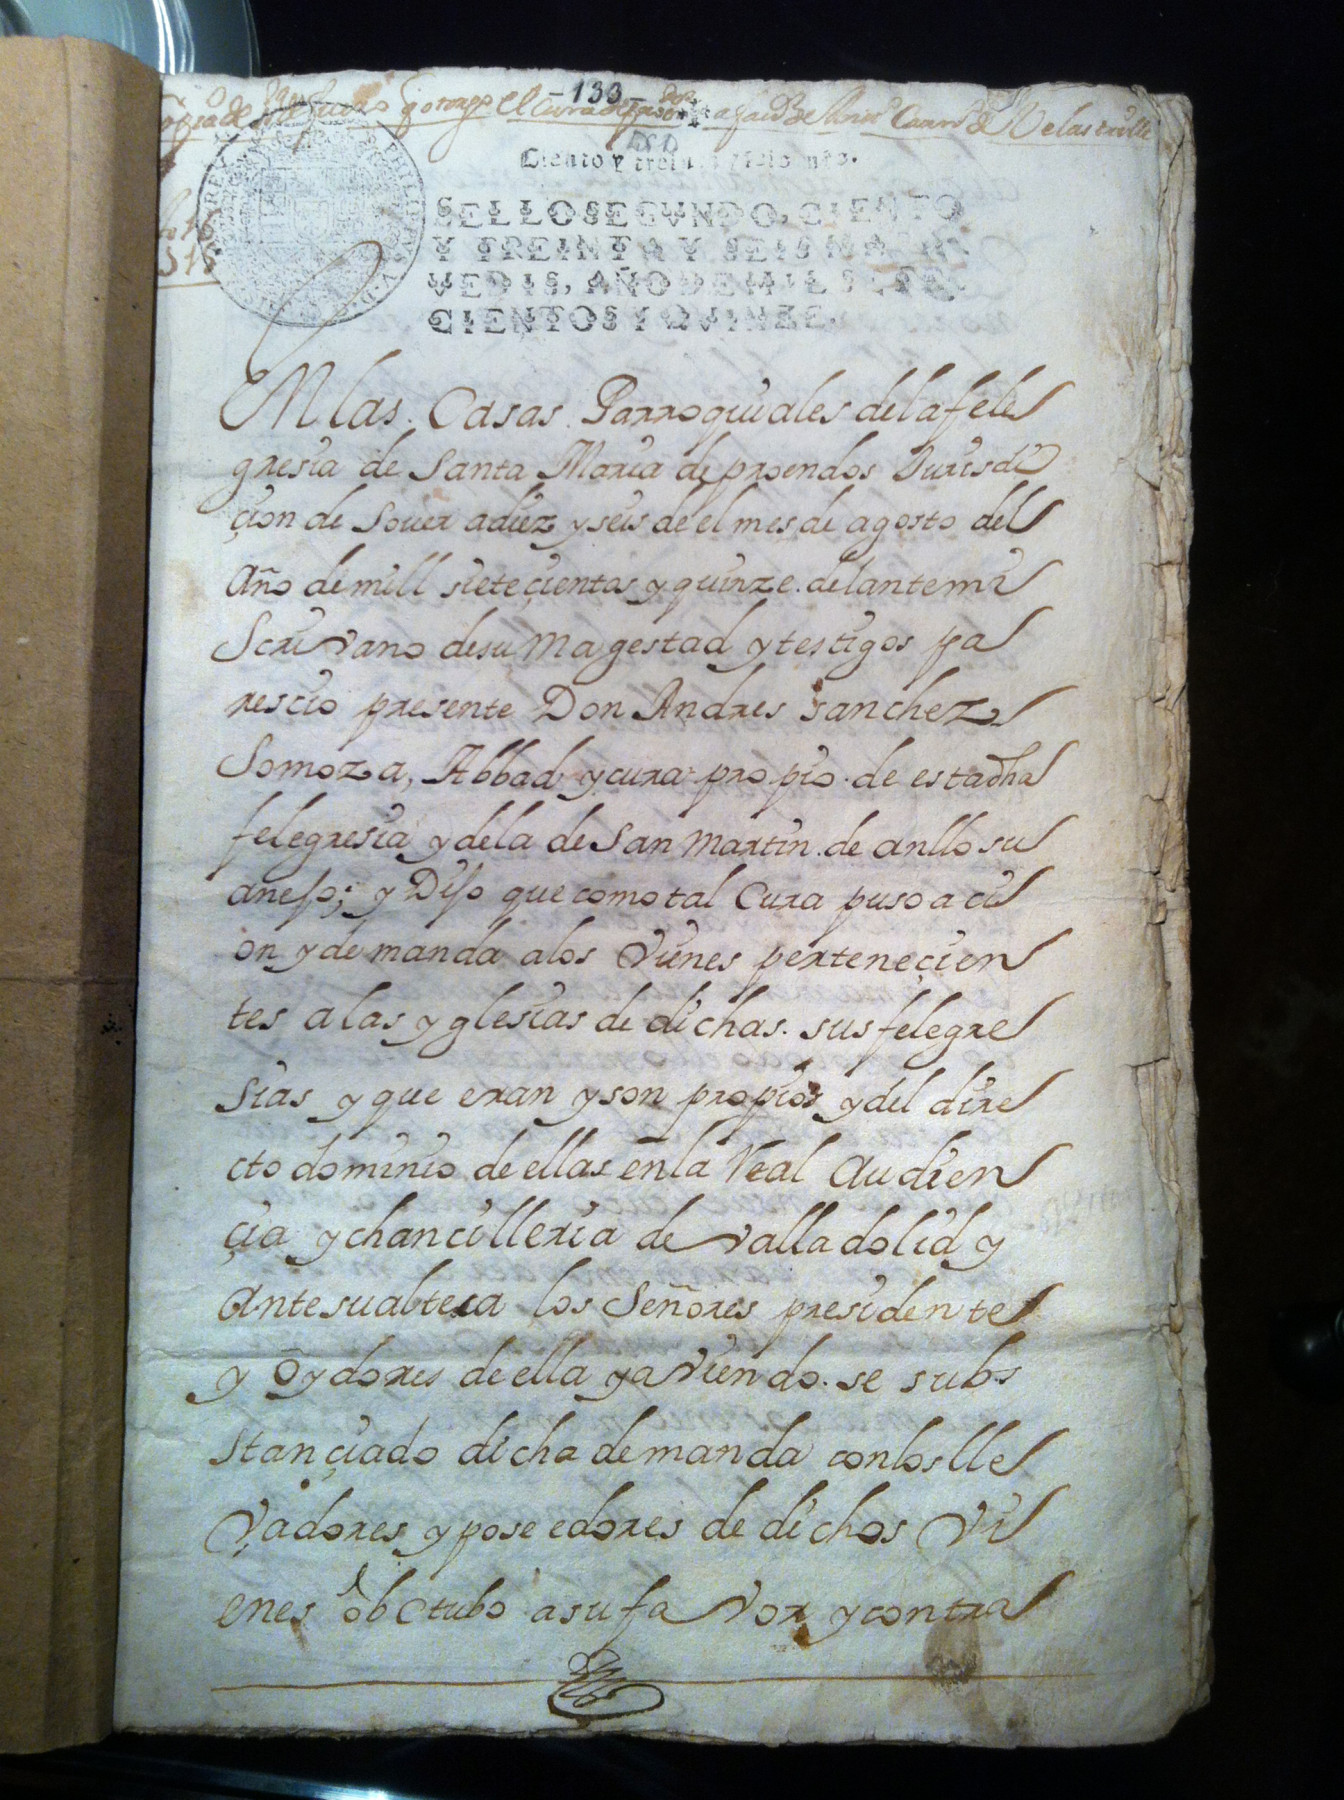 -133-
Ciento y treinta y seis mrs.
SELLO SEGVNDO, CIENTO
Y TREINTA Y SEIS MARA
VEDIS, AÑO DE MIL SETE
CIENTOS Y QVINZE.
PHILIPPVS V D
En las Casas Parroquiales de la fele
gresia de Santa Maria de proendos Jurisdi
çion de Sover a diez y seis de el mes de agosto del
Año de mill sieteçientos y quinze. delante mi
Scrivano de su Magestad y testigos pa
rescio presente Don Andres Sanchez
Somoza, Abbad y cura propio de esta dha
felegresia y de la de San Martin de anllo su
anejo; y Dijo que como tal Cura puso aci
on y demanda a los Vienes perteneçien
tes a las yglesias de dichas sus felegre
sias y que eran y son propios y del dire
cto dominio de ellas en la Real Audien
çia y chancilleria de valladolid y
Ante su alteca los Señores presidente
y oydores de ella y aviendo se subs
stançiado dicha demanda con los lle
vadores y poseedores de dichos Vi
enes obctubo a su favor y contra